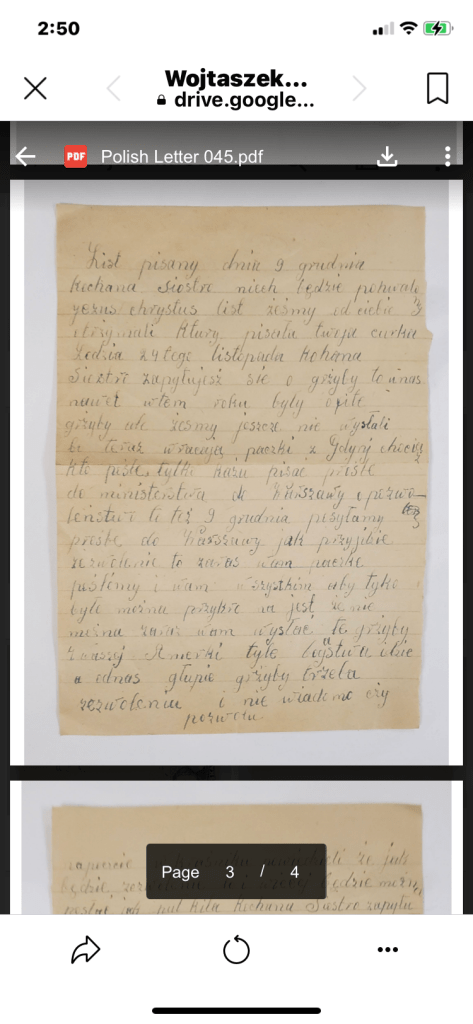 2:50
Wojtaszek...
drive.google...
PDF Polish Letter 045.pdf
List pisany dnia 9 grudnia
Kochana Siostro niech będzie pohwalo
yezus chrystus list żeśmy od ciebie
otrzymali ktury pisała twoja curka
Lodzia 24tego listopada Kohana
Siostro zapytujesz sie o grzyby to unas
nawet wtem roku były
grzyby ale żeśmy jeszcze nie wysłali
bo teraz wracają paczki z Gdyń chociąż
kto pisle tylko każu pisać prośbe
do ministerstwa do Warszawy o pozwo-
leństwo to też 9 grudnia posyłamy
prosbe do Warszawy jak przyjdzie
zezwolenie to zaras wam paczke
poślemy i wam wszystkim aby tyko
było można przykro na jest że nie
można zaraz wam wysłać te grzyby
zwaszej Ameriki tyle
a odnas głupie grzyby trzeba
zezwoleniu i nie wiadomo czy
pozwolu.
że juk
będzie można
posłać jak pul kila Kochana Siostro zapytu
Page 3 / 4